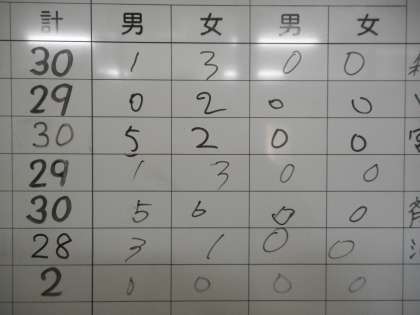 計 男 女 男 女
30 1 3 0 0
29 0 2 0 0
30 5 2 0 0
29 1 3 0 0
30 5 6 0 0
28 3 1 0 0
2 0 0 0 0